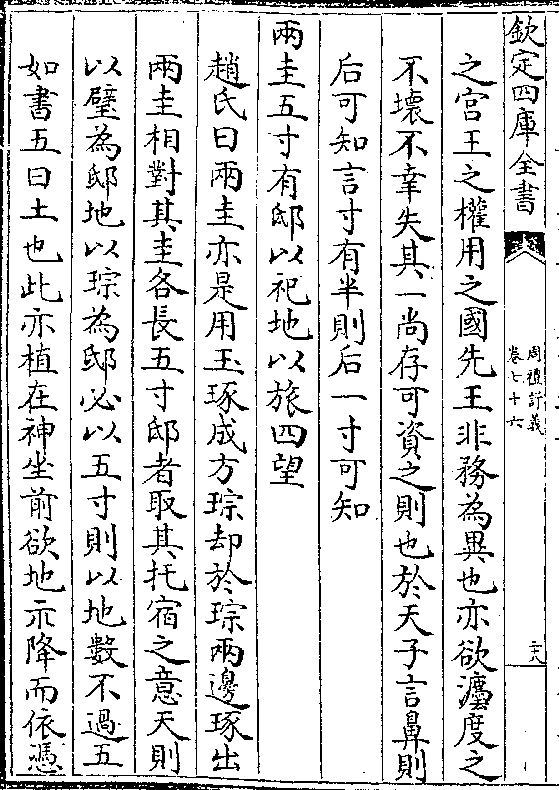 欽定四庫全書
周禮訂義
卷七十六
二十八
之宮王之權用之國先王非務為異也亦欲灋度之
不壞不幸失其一尚存可資之則也於天子言鼻則
后可知言寸有半則后一寸可知
兩圭五寸有邸以祀地以旅四望
趙氏曰兩圭亦是用玉琢成方琮却於琮兩邊琢出
兩圭相對其圭各長五寸邸者取其托宿之意天則
以璧為邸地以琮為邸必以五寸則以地數不過五
如書五曰土也此亦植在神坐前欲地示降而依憑